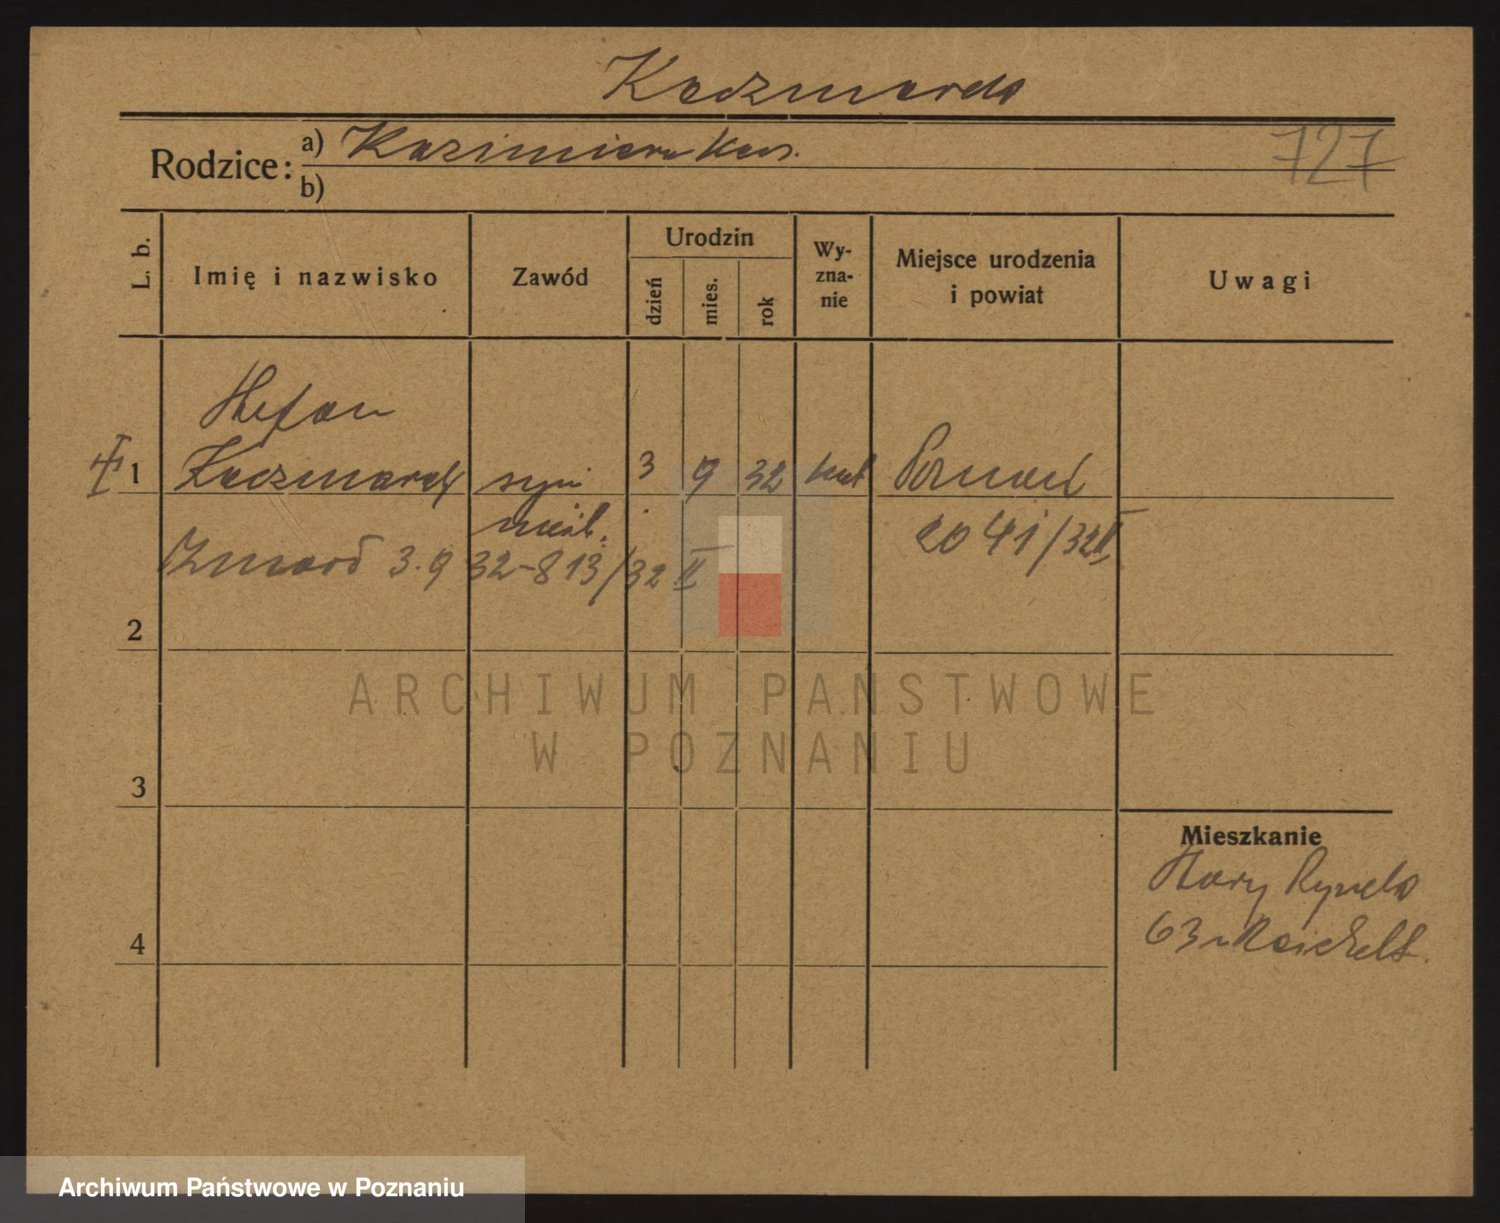 Kaczmarek
Rodzice:
a) Kazimiera
b)
727
L. b.
Imię i nazwisko
Zawód
Urodzin
dzień
mies.
rok
Wy-
zna-
nie
Miejsce urodzenia
i powiat
Uwagi
Stefan
1 Kaczmarek syn 3 9 32 kat Poznań
nieśl. 2041/32 II
Zmarł 3.9 32-813/32 II
2
3
4
Mieszkanie
Stary Rynek
63
ARCHIWUM PAŃSTWOWE
W POZNANIU
Archiwum Państwowe w Poznaniu